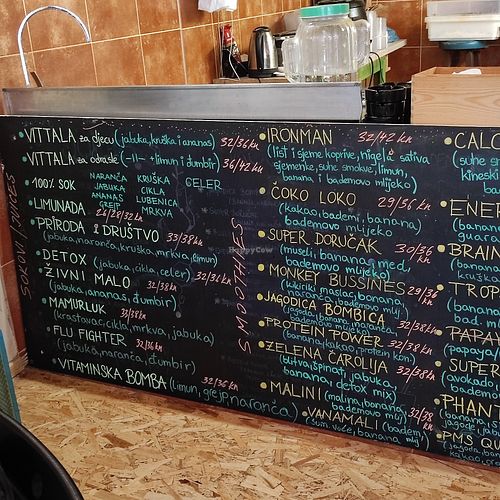 SOKOVI / JUICES
VITTALA za djecu (jabuka, kruška i ananas) 32/36 kn
VITTALA za odrasle (-11- + limun i đumbir) 36/42 kn
100% SOK NARANČA KRUŠKA CELER
JABUKA CIKLA
ANANAS LUBENICA
GREJP MRKVA
LIMUNADA 26/28/32 kn
PRIRODA & DRUŠTVO 33/38 kn
(jabuka, naranča, kruška, mrkva, limun)
DETOX (jabuka, cikla, celer) 32/36 kn
ŽIVNI MALO 32/38 kn
(jabuka, ananas, đumbir)
MAMURLUK 33/38 kn
(krastavac, cikla, mrkva, jabuka)
FLU FIGHTER 32/36 kn
(jabuka, naranča, đumbir)
VITAMINSKA BOMBA 32/36 kn
(limun, grejp, naranča)
SMOOTHIES
IRONMAN 32/42 kn
(list i sjeme koprive, nigela sativa
sjemenke, suhe smokve, limun,
banana i bademovo mlijeko)
ČOKO LOKO 29/36 kn
(kakao, badem, banana,
bademovo mlijeko)
SUPER DORUČAK 30/36 kn
(muesli, banana, med,
bademovo mlijeko)
MONKEY BUSSINES 29/36 kn
(kikiriki maslac, banana,
JAGODIČA BOMBICA
(jagoda, banana, naranča, 32/38 kn
bademovo mlijeko)
PROTEIN POWER 32/38 kn
(banana, kakao, protein, kon)
ZELENA ČAROLIJA 32/38 kn
(blitva, špinat, jabuka,
banana, detox mix)
MALINI (malina, banana, 32/38 kn
bademovo mlij)
VANAMALI (badem,
šum. voće, banana, mlij)
CALC
(suhe
kineski
ba
ENER
(banana
guara
BRAIN
(banana
krušk
TROP
(banana,
bad
PAPAY
(papaya
SUPER
(avokado,
badem
PHAN
(banana,
jagode, jabu
PMS QU
(banana, bade
kakao,
HappyCow